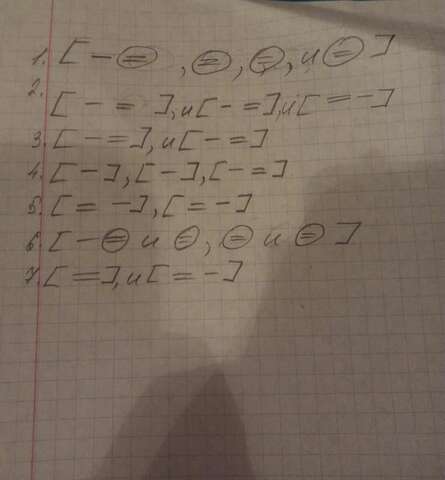 1. [ — ⊜ , ⊜ , ⊜ , и ⊜ ]
2. [ — = ], и [ — = ], и [ = — ]
3. [ — = ], и [ — = ]
4. [ — ], [ — ], [ — = ]
5. [ = — ], [ = — ]
6. [ — ⊜ и ⊜ , ⊜ и ⊜ ]
7. [ = ], и [ = — ]